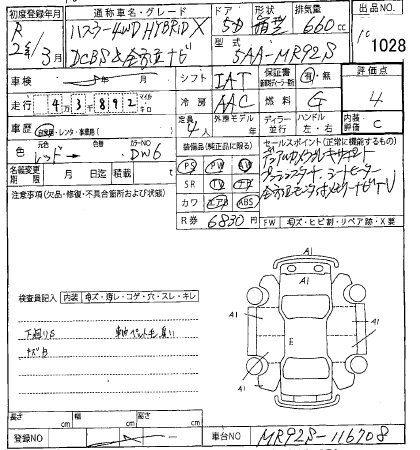 初度登録年月 通称車名・グレード ドア 形状 排気量 出品NO
R 2年/3月 ハスラー4WD HYBRID X 5D 箱型 660cc 1028
DCBS&全方位ナビ 型式 5AA-MR92S
車検 年 月 シフト IAT 保証書 新車時ディーラー発行 有・無 評価点
走行 43892 マイル キロ 冷房 AAC 燃料 G 4
車歴 自家用・レンタ・事業用( ) 定員 4人 外車モデル 年 ディーラー 並行 ハンドル 左・右 内装評価 C
色 レッド→ 色替 カラーNO DW6 装備品(純正品に限る) セールスポイント(正常に機能するもの)
名義変更期限 月 日迄 積載 t PS PW AW デュアルカメラブレーキサポート
注意事項(欠品・修復・不具合箇所および状態) SR TV プッシュスタート、シートヒーター
カワ ABS 全方位モニターナビTV
R券 6830円 FW キズ・ヒビ割・リペア跡・X要
検査員記入 内装 キズ・汚レ・コゲ・穴・スレ・キレ
A1
下廻りS 車内ペット毛、臭い
A1 A1
キズ有
E
A1
A1
長さ cm 幅 cm 高さ cm
登録NO 車台NO MR92S-116708